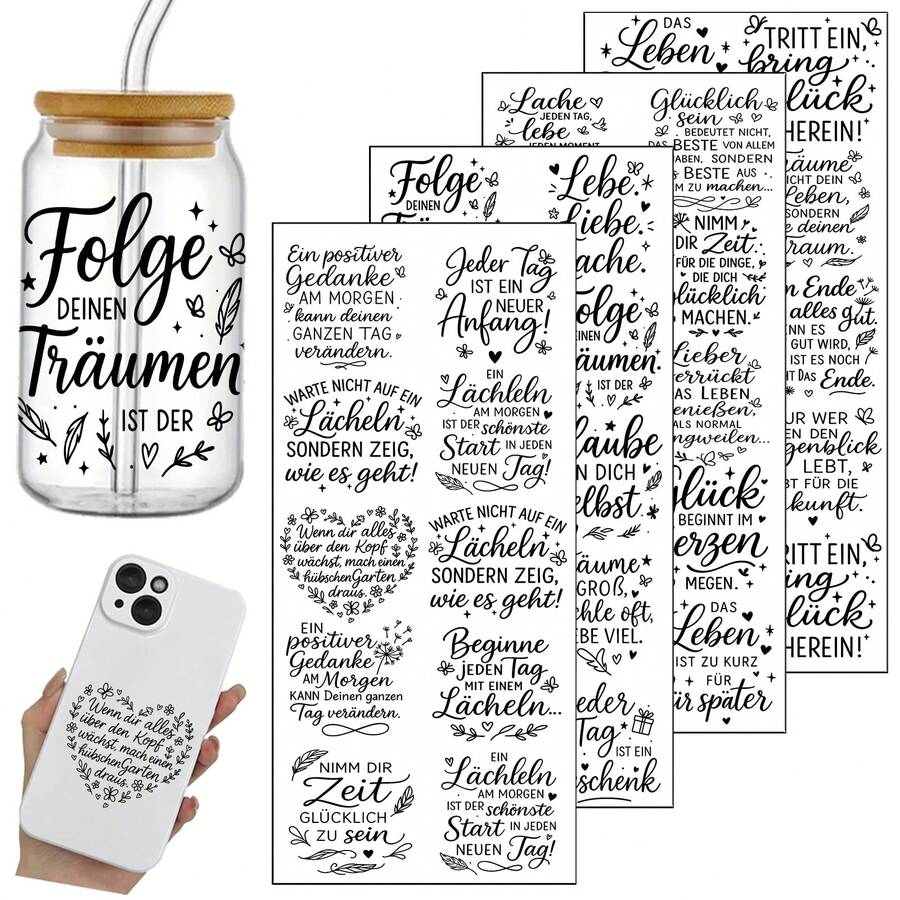 Folge
DEINEN
Träumen
IST DER
Wenn dir alles
über den Kopf
wächst, mach einen
hübschen Garten
draus.
Ein positiver
Gedanke
AM MORGEN
kann deinen
GANZEN TAG
verändern.
Jeder Tag
IST EIN
NEUER
Anfang!
WARTE NICHT AUF EIN
Lächeln,
SONDERN ZEIG,
wie es geht!
EIN
Lächleln
AM MORGEN
IST DER schönste
Start IN JEDEN
NEUEN Tag!
Wenn dir alles
über den Kopf
wächst, mach einen
hübschen Garten
draus.
WARTE NICHT AUF EIN
Lächeln,
SONDERN ZEIG,
wie es geht!
EIN
positiver
Gedanke
AM Morgen
KANN Deinen ganzen
Tag verändern.
Beginne
JEDEN Tag
MIT EINEM
Lächeln...
NIMM DIR
Zeit
GLÜCKLICH
ZU sein
EIN
Lächleln
AM MORGEN
IST DER schönste
Start IN JEDEN
NEUEN Tag!
Folge
DEINEN
Lebe.
IST DER
N DICH
GROß,
Tag
IST EIN
Lache
JEDEN TAG,
lebe
JEDEN MOMENT
Glücklich
sein
BEDEUTET NICHT,
DAS BESTE VON ALLEM
SONDERN
BESTE AUS
ZU machen...
NIMM
DIR Zeit
FÜR DIE DINGE,
DIE DICH
glücklich
MACHEN.
Lieber
verrückt
DAS LEBEN
genießen,
ALS NORMAL
langweilen...
Glück
BEGINNT IM
Herzen
MEGEN.
DAS
Leben
IST ZU KURZ
FÜR
für später
DAS
Leben
TRITT EIN,
bring
Glück
HEREIN!
Träume
NICHT DEIN
Leben,
SONDERN
deinen
Traum.
Ende
alles gut.
WENN ES
GUT WIRD,
IST ES NOCH
Das Ende.
NUR WER
DEN
Augenblick
LEBT,
FÜR DIE
Zukunft.
TRITT EIN,
bring
Glück
HEREIN!